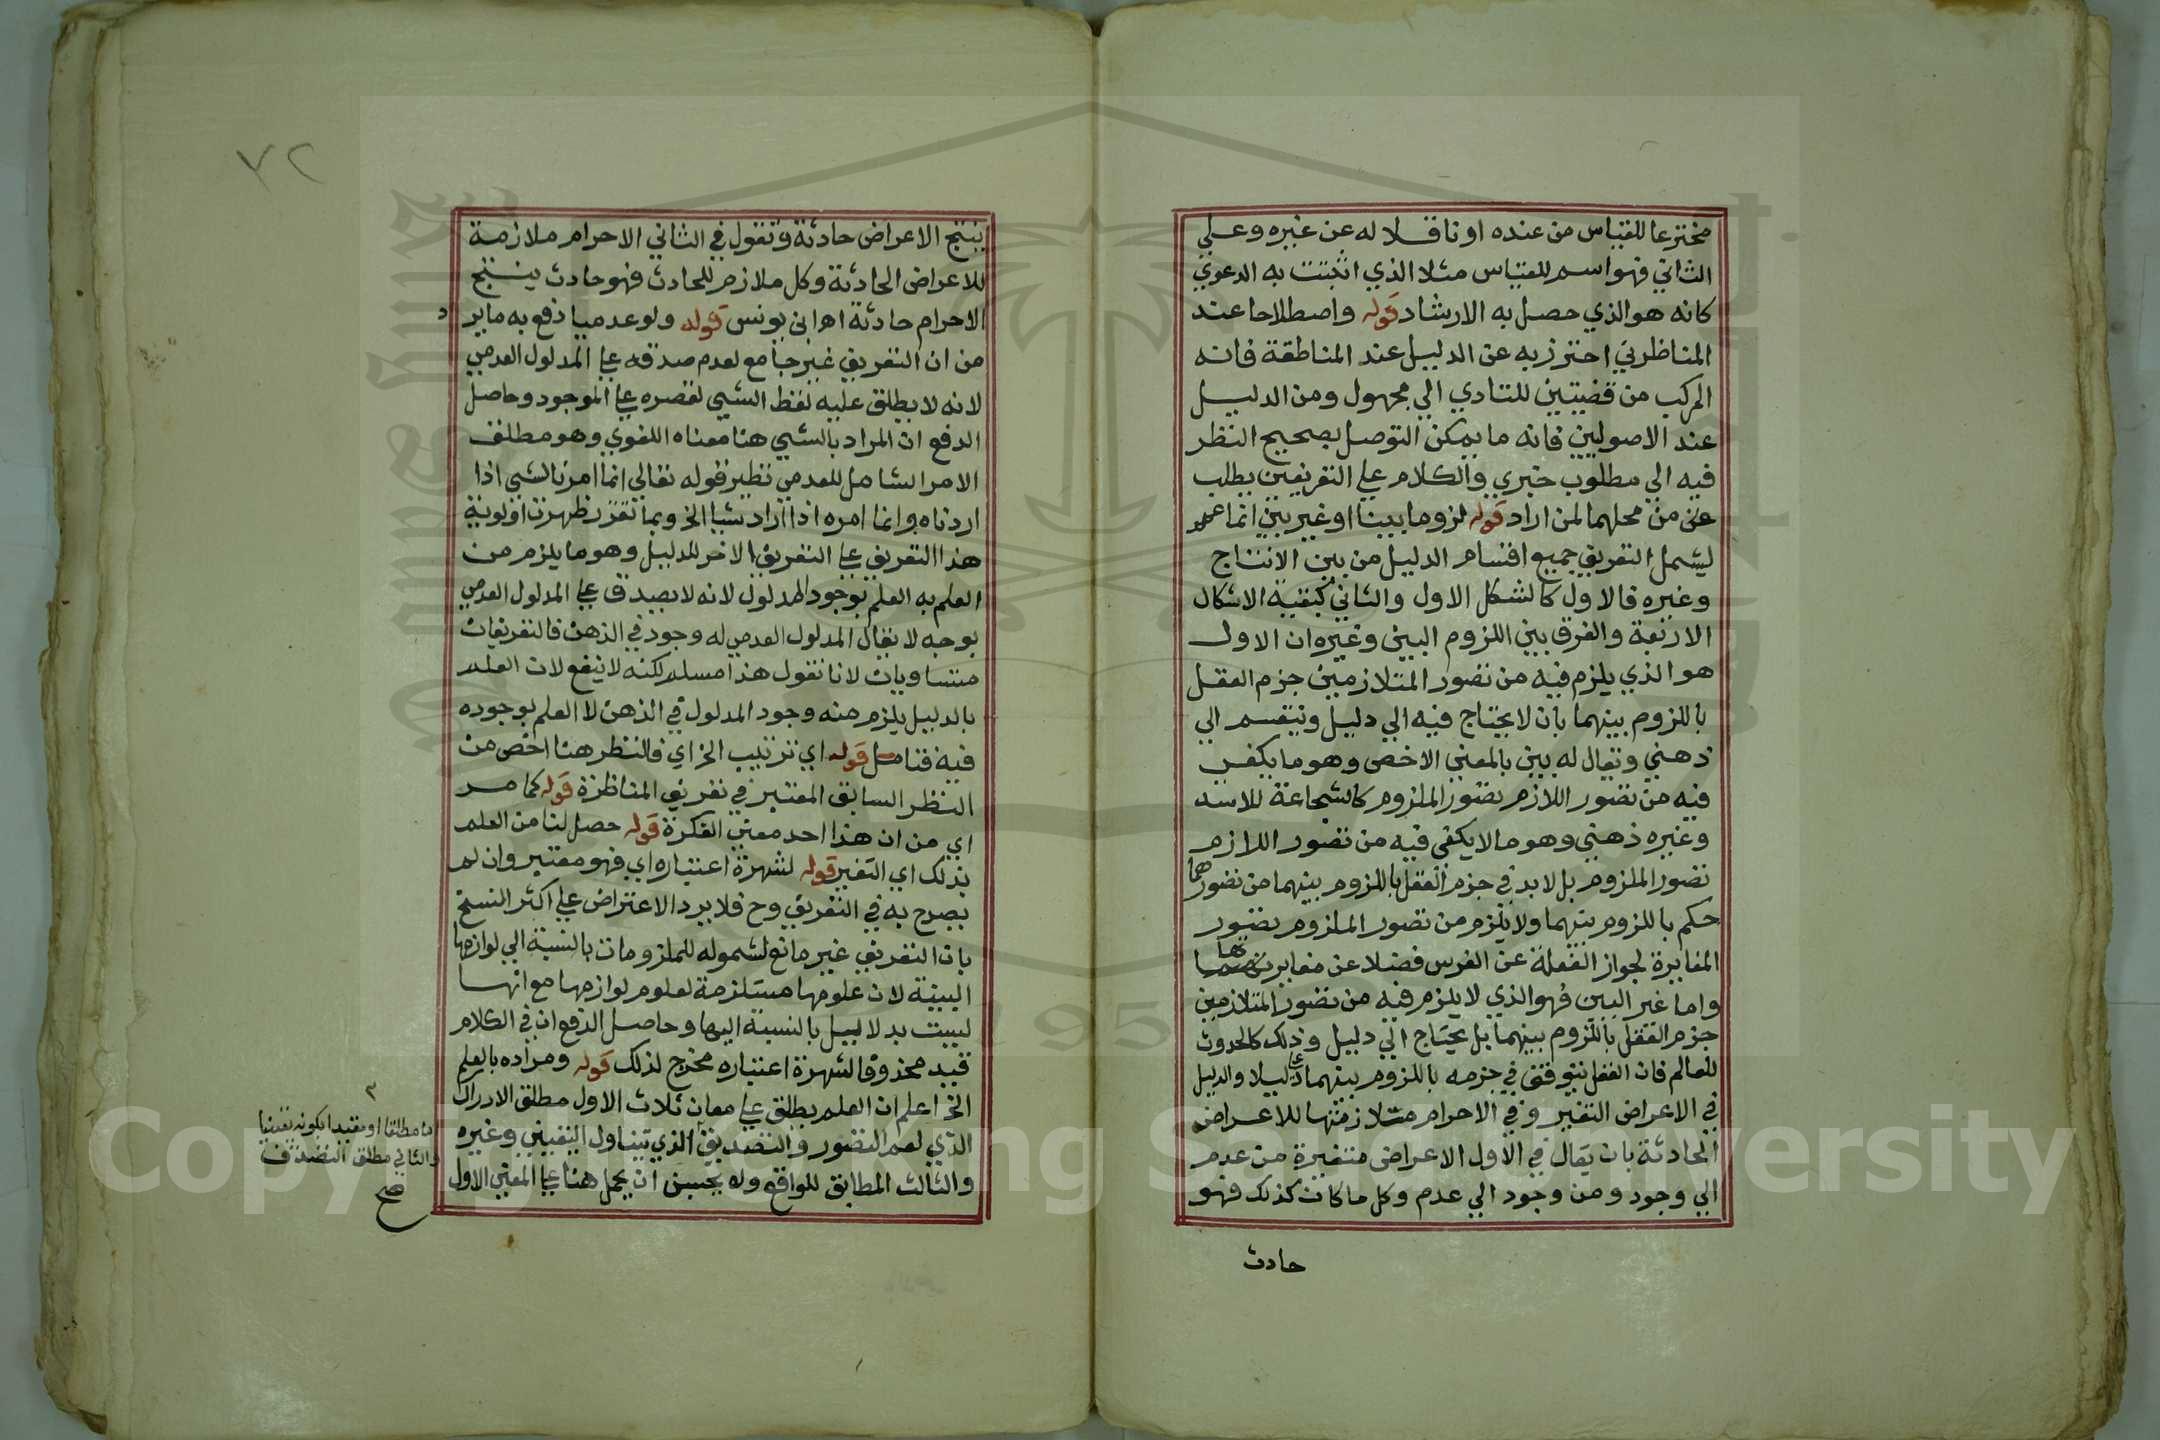 مخترعا للقياس من عنده او ناقلا له عن غيره وعلي
الثاني فهو اسم للقياس مثلا الذي اثبتت به الدعوي
كانه هو الذي حصل به الارشاد قوله واصطلاحا عند
المناظرين احترز به عن الدليل عند المناطقة فانه
المركب من قضيتين للتادي الي مجهول ومن الدليل
عند الاصوليين فانه ما يمكن التوصل بصحيح النظر
فيه الي مطلوب خبري والكلام علي التفريعين يطلب
من محلهما لمن اراد قوله لزوما بينا او غير بين انما عمم
ليشمل التعريف جميع اقسام الدليل من بين الانتاج
وغيره فالاول كالشكل الاول والثاني كبقية الاشكال
الاربعة والفرق بين اللزوم البين وغيره ان الاول
هو الذي يلزم فيه من تصور المتلازمين جزم العقل
باللزوم بينهما بان لا يحتاج فيه الي دليل وينقسم الي
ذهني ويقال له بين بالمعني الاخص وهو ما يكفي
فيه من تصور اللازم تصور الملزوم كالشجاعة للاسد
وغيره ذهني وهو ما لا يكفي فيه من تصور اللازم
تصور الملزوم بل لا بد في جزم العقل باللزوم بينهما من تصورهما
حكم باللزوم بينهما ولا يلزم من تصور الملزوم تصور
المغايرة لجواز الغفلة عن الفرس فضلا عن مغايرتهما
واما غير البين فهو الذي لا يلزم فيه من تصور المتلازمين
جزم العقل باللزوم بينهما بل يحتاج الي دليل وذلك كالحدوث
للعالم فان العقل يتوقف في جزمه باللزوم بينهما علي دليلا والدليل
في الاعراض التغير وفي الاجرام ملازمتها للاعراض
الحادثة بان يقال في الاول الاعراض متغيرة من عدم
الي وجود ومن وجود الي عدم وكل ما كان كذلك فهو
حادث
٧٢
ينتج الاعراض حادثة وتقول في الثاني الاجرام ملازمة
للاعراض الحادثة وكل ملازم للحادث فهو حادث ينتج
الاجرام حادثة اه ابن يونس قوله ولو عدميا دفع به ما يرد
من ان التعريف غير جامع لعدم صدقه علي المدلول العدمي
لانه لا يطلق عليه لفظ الشيي لقصره علي الموجود وحاصل
الدفع ان المراد بالشيي هنا معناه اللغوي وهو مطلق
الامر الشامل للعدمي نظير قوله تعالي انما امرنا لشي اذا
اردناه وانما امره اذا اراد شيا الخ وبما تقرر ظهرت اولوية
هذا التعريف علي التعريف الاخر للدليل وهو ما يلزم من
العلم به العلم بوجود المدلول لانه لا يصدق علي المدلول العدمي
بوجه لا يقال المدلول العدمي له وجود في الذهن فالتعريفان
متساويان لانا نقول هذا مسلم لكنه لا ينفع لان العلم
بالدليل يلزم منه وجود المدلول في الذهن لا العلم بوجوده
فيه فتامل قوله اي ترتيب الخ اي فالنظر هنا اخص من
النظر السابق المعتبر في تعريف المناظرة قوله كما مر
اي من ان هذا احد معني الفكرة قوله حصل لنا من العلم
بذلك اي التغير قوله لشهرة اعتباره اي فهو معتبر وان لم
يصرح به في التعريف وح فلا يرد الاعتراض علي اكثر النسخ
بان التعريف غير مانع لشموله للملزومات بالنسبة الي لوازمها
البينة لان علومها مستلزمة لعلوم لوازمها مع انها
ليست بدلايل بالنسبة اليها وحاصل الدفع ان في الكلام
قيد محذوفا لشهرة اعتباره مخرج لذلك قوله ومراده بالعلم
الخ اعلم ان العلم يطلق علي معان ثلاث الاول مطلق الادراك
الذي لعم التصور والتصديق الذي يتناول اليقيني وغيره
والثالث المطابق للواقع وله يحسن ان يحمل هنا علي المعني الاول
٣
اما مطلقا او مقيدا بكونه يقينيا
والثاني مطلق التصديق
صح